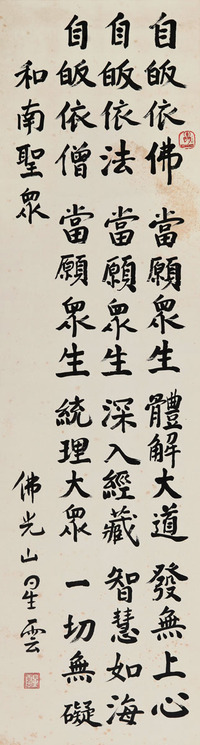 自皈依佛 當願眾生 體解大道 發無上心
自皈依法 當願眾生 深入經藏 智慧如海
自皈依僧 當願眾生 統理大眾 一切無礙
和南聖眾
佛光山星雲